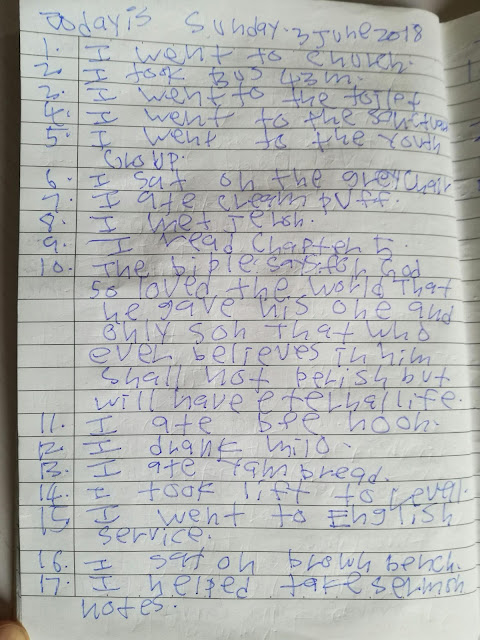 Today is Sunday. 3 June 2018
1. I went to church.
2. I took BUS 43m.
3. I went to the toilet
4. I went to the
5. I went to the Youth
Group.
6. I sat on the grey Chair
7. I ate cream puff.
8. I met
9. I read Chapter
10. The bible for God
so loved the world that
he gave his one and
only son that who
ever believes in him
shall not perish but
will have eternal life.
11. I ate bee hoon.
12. I drank milo.
13. I ate bread.
14. I took lift to level
15 I went to English
service.
16. I sat on brown bench.
17. I helped take sermon
notes.